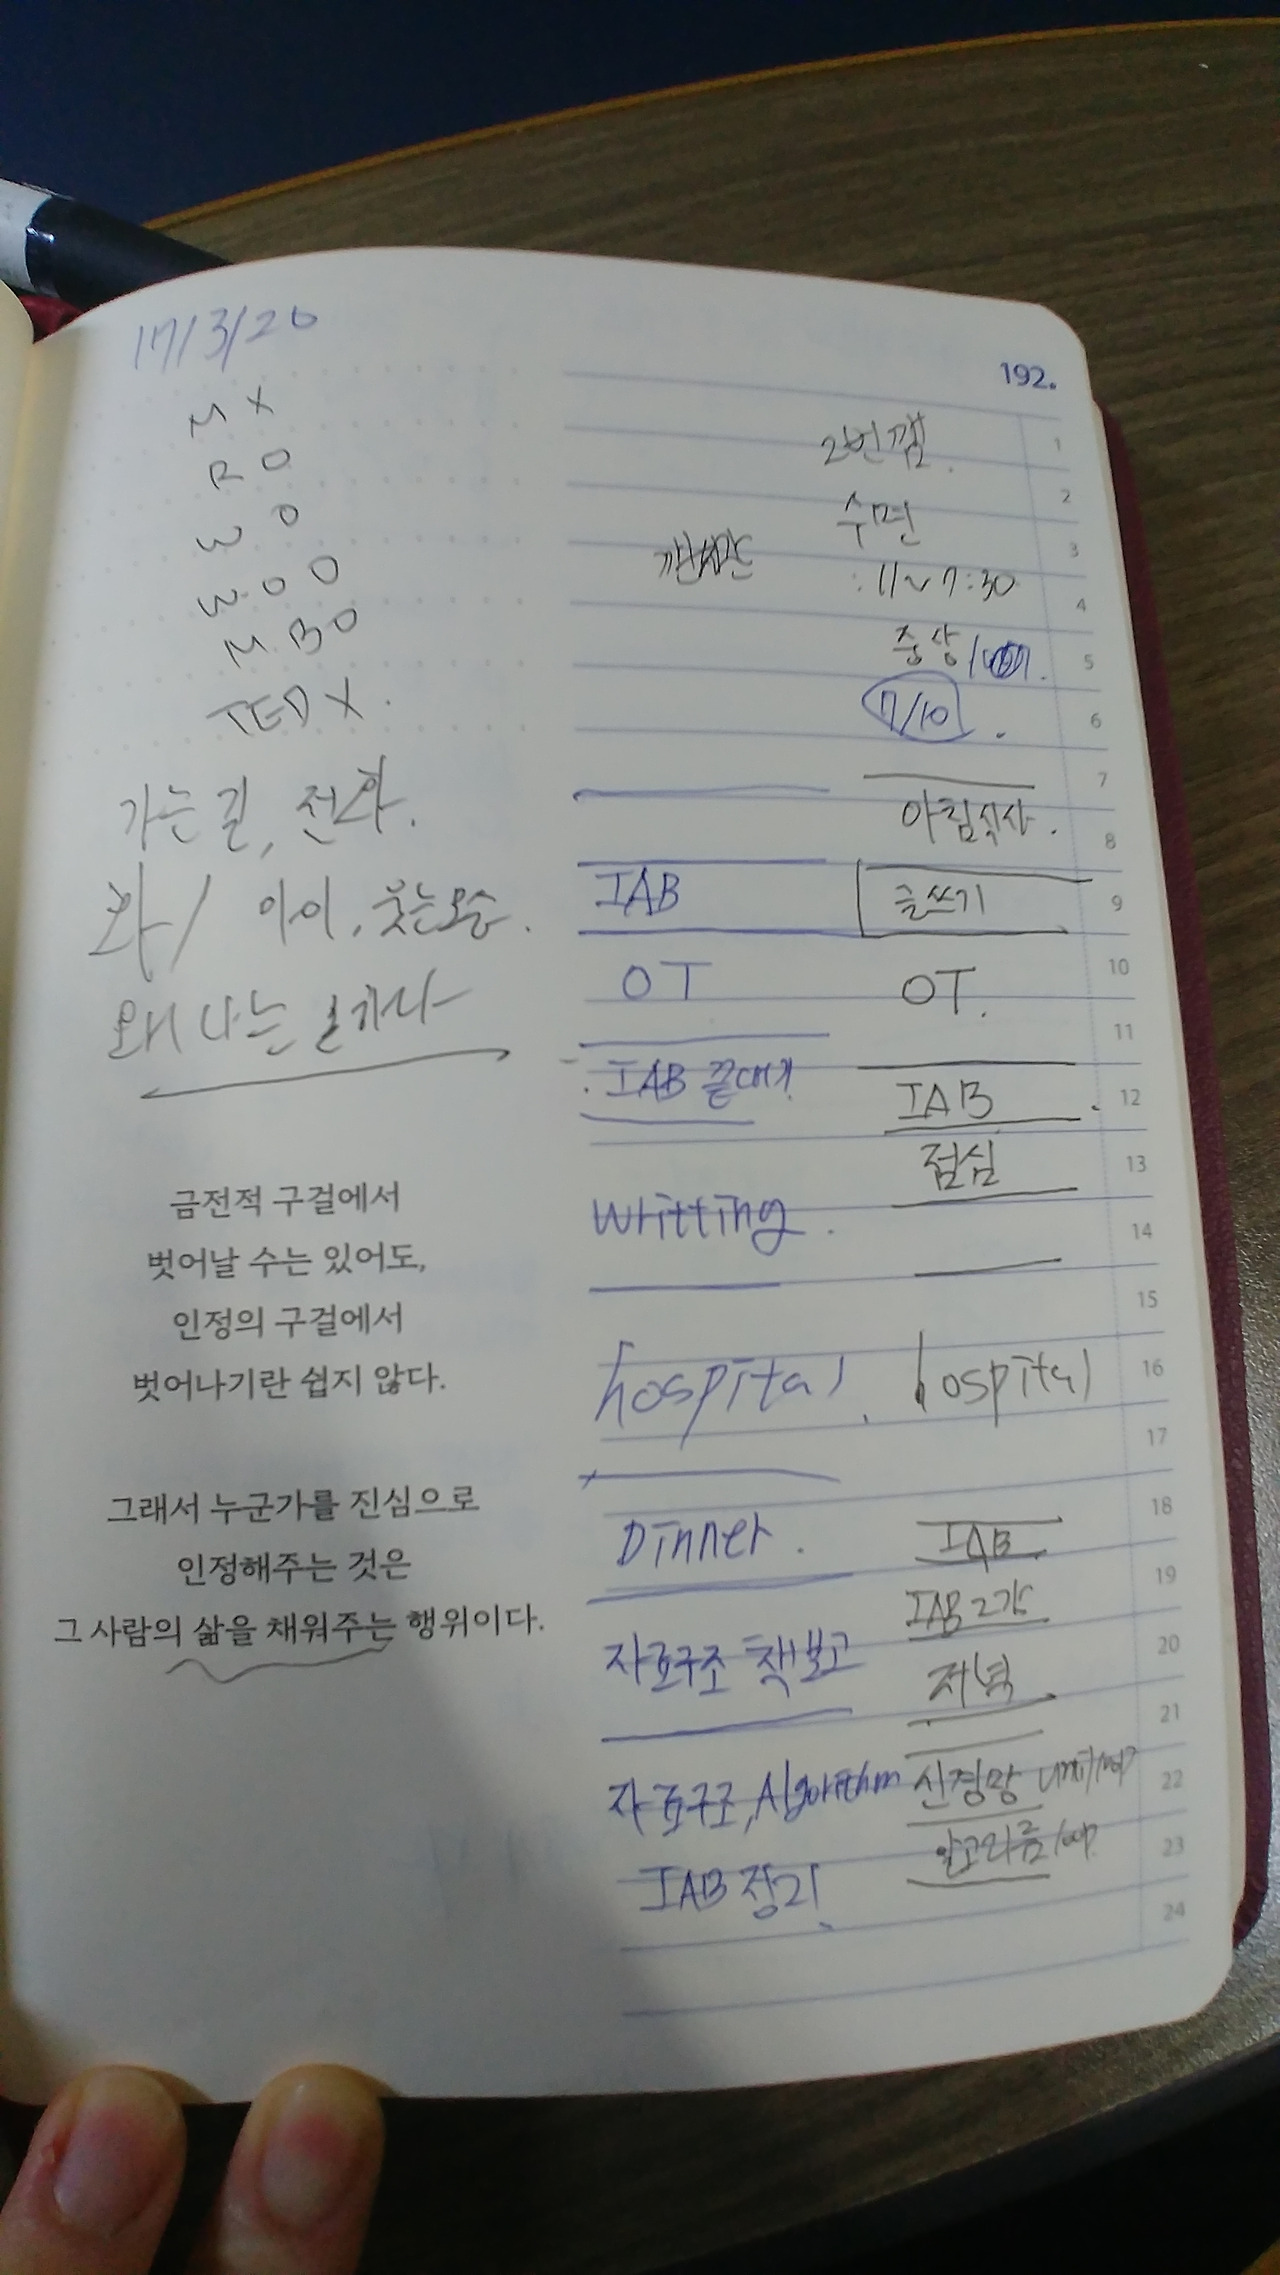 17/3/20
M X
R O
W O
W. O O
M. B O
TED X.
가는 길, 전화.
화 / 아이, 웃는모습.
왜 나는 일기나
금전적 구걸에서
벗어날 수는 있어도,
인정의 구걸에서
벗어나기란 쉽지 않다.
그래서 누군가를 진심으로
인정해주는 것은
그 사람의 삶을 채워주는 행위이다.
192.
IAB
OT
IAB 끝내기
writting.
hospital.
Dinner.
자료구조 책보고
자료구조, Algorithm
IAB 정리
2번깸.
수면
: 11~7:30
중상/
7/10.
아침식사.
글쓰기
OT.
IAB.
점심
hospital
IAB
IAB 2강
저녁
신경망
알고리즘
1
2
3
4
5
6
7
8
9
10
11
12
13
14
15
16
17
18
19
20
21
22
23
24